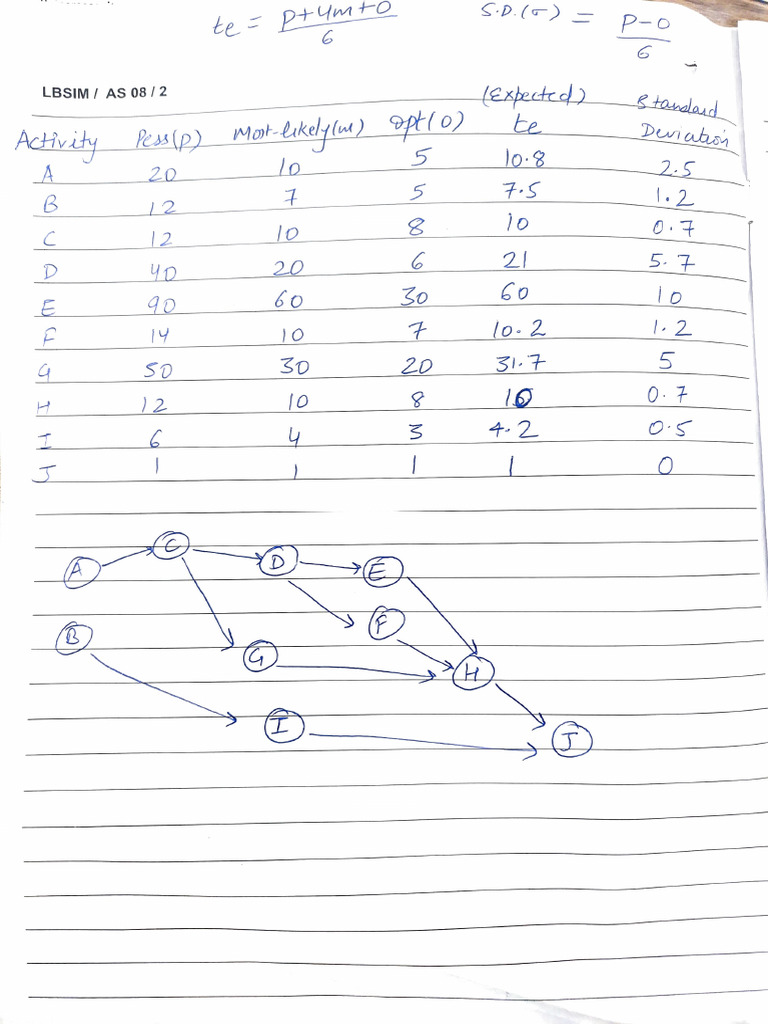 te = P+4m+O / 6 S.D.(σ) = P-O / 6
LBSIM / AS 08 / 2
(Expected) Standard
Activity Pess(P) Most-likely(m) opt(O) te Deviation
A 20 10 5 10.8 2.5
B 12 7 5 7.5 1.2
C 12 10 8 10 0.7
D 40 20 6 21 5.7
E 90 60 30 60 10
F 14 10 7 10.2 1.2
G 50 30 20 31.7 5
H 12 10 8 10 0.7
I 6 4 3 4.2 0.5
J 1 1 1 1 0
A C D E
B G F H
I J